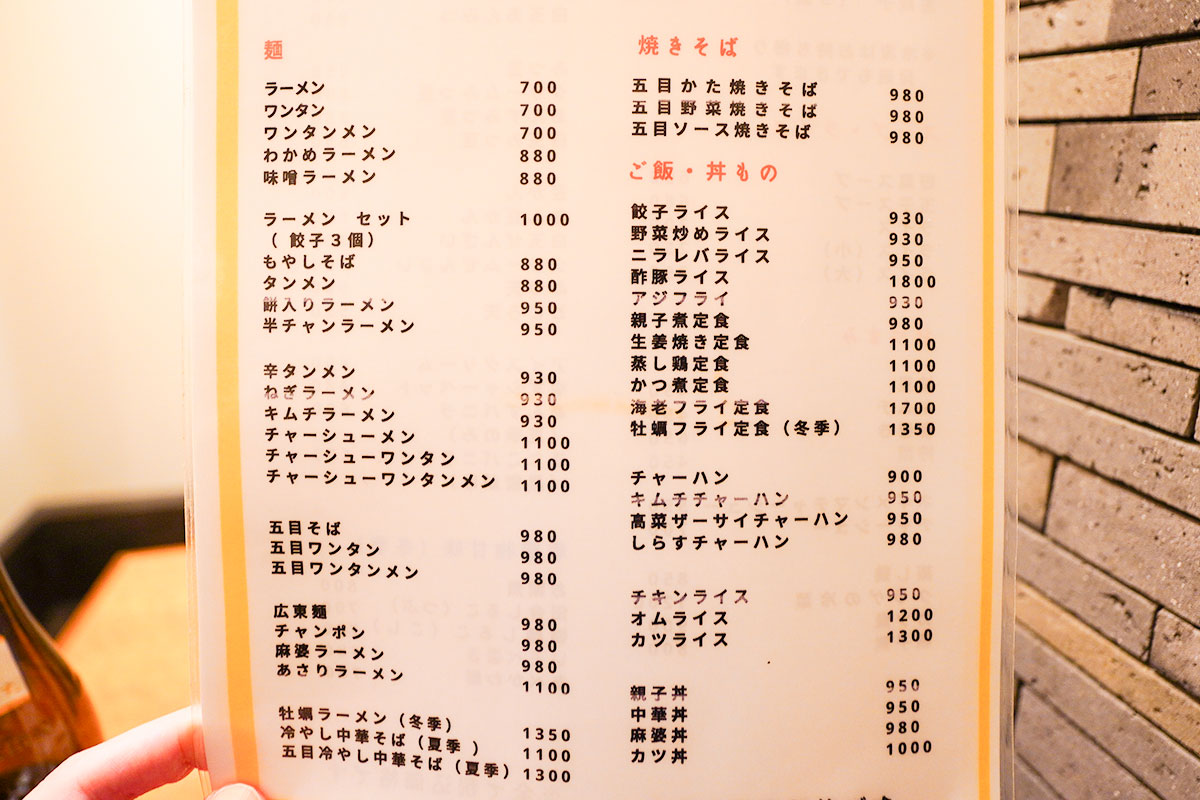 麺
ラーメン 700
ワンタン 700
ワンタンメン 700
わかめラーメン 880
味噌ラーメン 880
ラーメン セット 1000
（餃子３個）
もやしそば 880
タンメン 880
餅入りラーメン 950
半チャンラーメン 950
辛タンメン 930
ねぎラーメン 930
キムチラーメン 930
チャーシューメン 1100
チャーシューワンタン 1100
チャーシューワンタンメン 1100
五目そば 980
五目ワンタン 980
五目ワンタンメン 980
広東麺 980
チャンポン 980
麻婆ラーメン 980
あさりラーメン 1100
牡蠣ラーメン（冬季） 1350
冷やし中華そば（夏季 ） 1100
五目冷やし中華そば（夏季） 1300
焼きそば
五目かた焼きそば 980
五目野菜焼きそば 980
五目ソース焼きそば 980
ご飯・丼もの
餃子ライス 930
野菜炒めライス 930
ニラレバライス 950
酢豚ライス 1800
アジフライ 930
親子煮定食 980
生姜焼き定食 1100
蒸し鶏定食 1100
かつ煮定食 1100
海老フライ定食 1700
牡蠣フライ定食（冬季） 1350
チャーハン 900
キムチチャーハン 950
高菜ザーサイチャーハン 950
しらすチャーハン 980
チキンライス 950
オムライス 1200
カツライス 1300
親子丼 950
中華丼 950
麻婆丼 980
カツ丼 1000